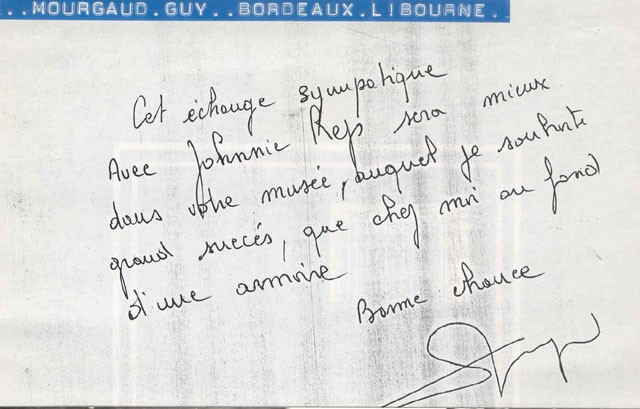 ..MOURGAUD.GUY..BORDEAUX.LIBOURNE..
Cet échange sympatique
Avec Johnnie Rep sera mieux
dans votre musée, auquel je souhaite
grand succés, que chez moi au fond
d'une armoire
Bonne chance